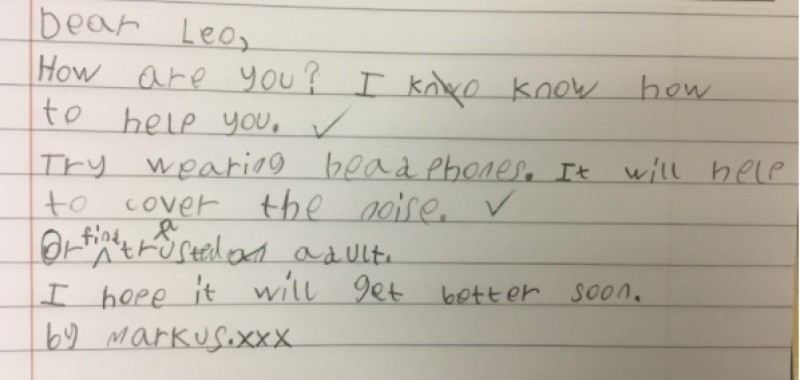 Dear Leo,
How are you? I knwo know how
to help you. ✓
Try wearing headphones. It will help
to cover the noise. ✓
Or find a trusted an adult.
I hope it will get better soon.
by Markus.xxx